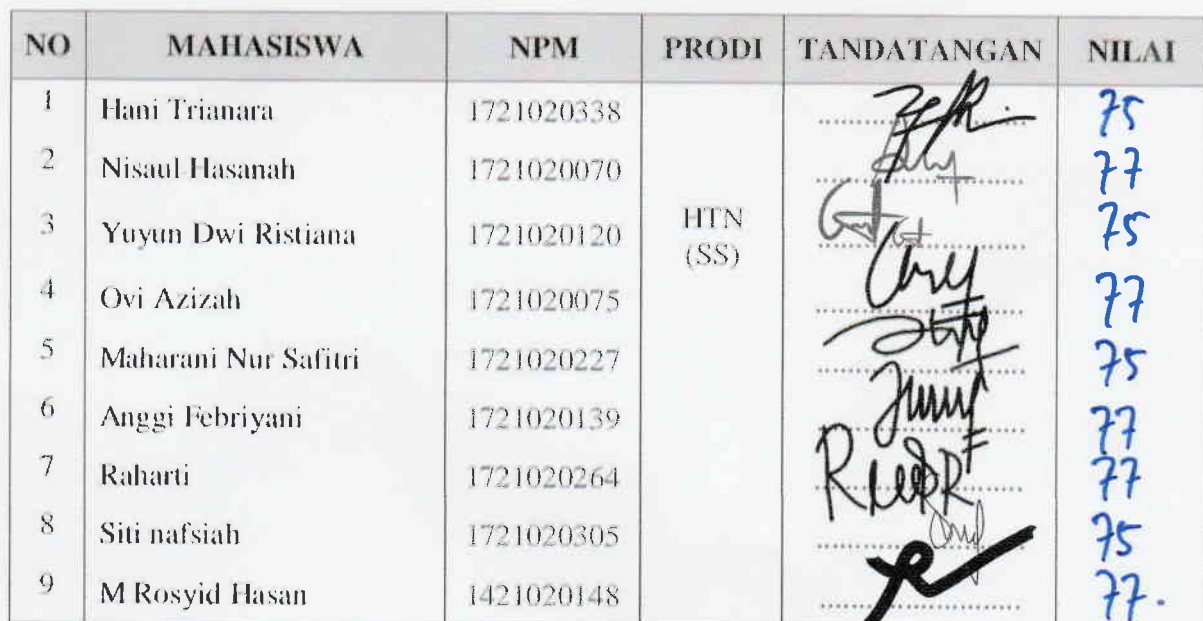 NO MAHASISWA NPM PRODI TANDATANGAN NILAI
1 Hani Trianara 1721020338 75
2 Nisaul Hasanah 1721020070 77
3 Yuyun Dwi Ristiana 1721020120 HTN (SS) 75
4 Ovi Azizah 1721020075 77
5 Maharani Nur Safitri 1721020227 75
6 Anggi Febriyani 1721020139 77
7 Raharti 1721020264 77
8 Siti nafsiah 1721020305 75
9 M Rosyid Hasan 1421020148 77.